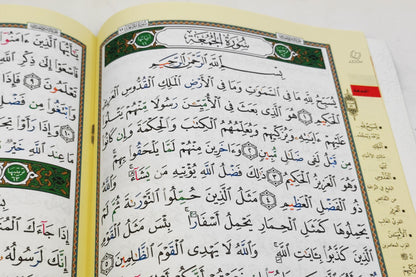 سُورَةُ الجُمُعَةِ
بِسْمِ اللَّهِ الرَّحْمَٰنِ الرَّحِيمِ
يُسَبِّحُ لِلَّهِ مَا فِي السَّمَٰوَٰتِ وَمَا فِي الْأَرْضِ الْمَلِكِ الْقُدُّوسِ الْعَزِيزِ
الْحَكِيمِ ١ هُوَ الَّذِي بَعَثَ فِي الْأُمِّيِّينَ رَسُولًا مِّنْهُمْ يَتْلُوا
عَلَيْهِمْ ءَايَٰتِهِ وَيُزَكِّيهِمْ وَيُعَلِّمُهُمُ الْكِتَٰبَ وَالْحِكْمَةَ وَإِن كَانُوا
مِن قَبْلُ لَفِي ضَلَٰلٍ مُّبِينٍ ٢ وَءَاخَرِينَ مِنْهُمْ لَمَّا يَلْحَقُوا بِهِمْ
وَهُوَ الْعَزِيزُ الْحَكِيمُ ٣ ذَٰلِكَ فَضْلُ اللَّهِ يُؤْتِيهِ مَن يَشَآءُ وَاللَّهُ
ذُو الْفَضْلِ الْعَظِيمِ ٤ مَثَلُ الَّذِينَ حُمِّلُوا التَّوْرَىٰةَ ثُمَّ لَمْ
يَحْمِلُوهَا كَمَثَلِ الْحِمَارِ يَحْمِلُ أَسْفَارًا بِئْسَ مَثَلُ الْقَوْمِ
الَّذِينَ كَذَّبُوا بِـَٔايَٰتِ اللَّهِ وَاللَّهُ لَا يَهْدِي الْقَوْمَ الظَّٰلِمِينَ ٥
يَٰٓأَيُّهَا الَّذِينَ ءَامَنُوا
فَاسْعَوْا إِلَىٰ ذِكْرِ اللَّهِ
تَعْلَمُونَ ٩
وَابْتَغُوا مِن فَضْلِ
١٠ وَإِذَا رَأَوْا
مَا عِندَ اللَّهِ خَيْرٌ
إِذَا جَآءَكَ
إِنَّكَ لَرَسُولُهُ